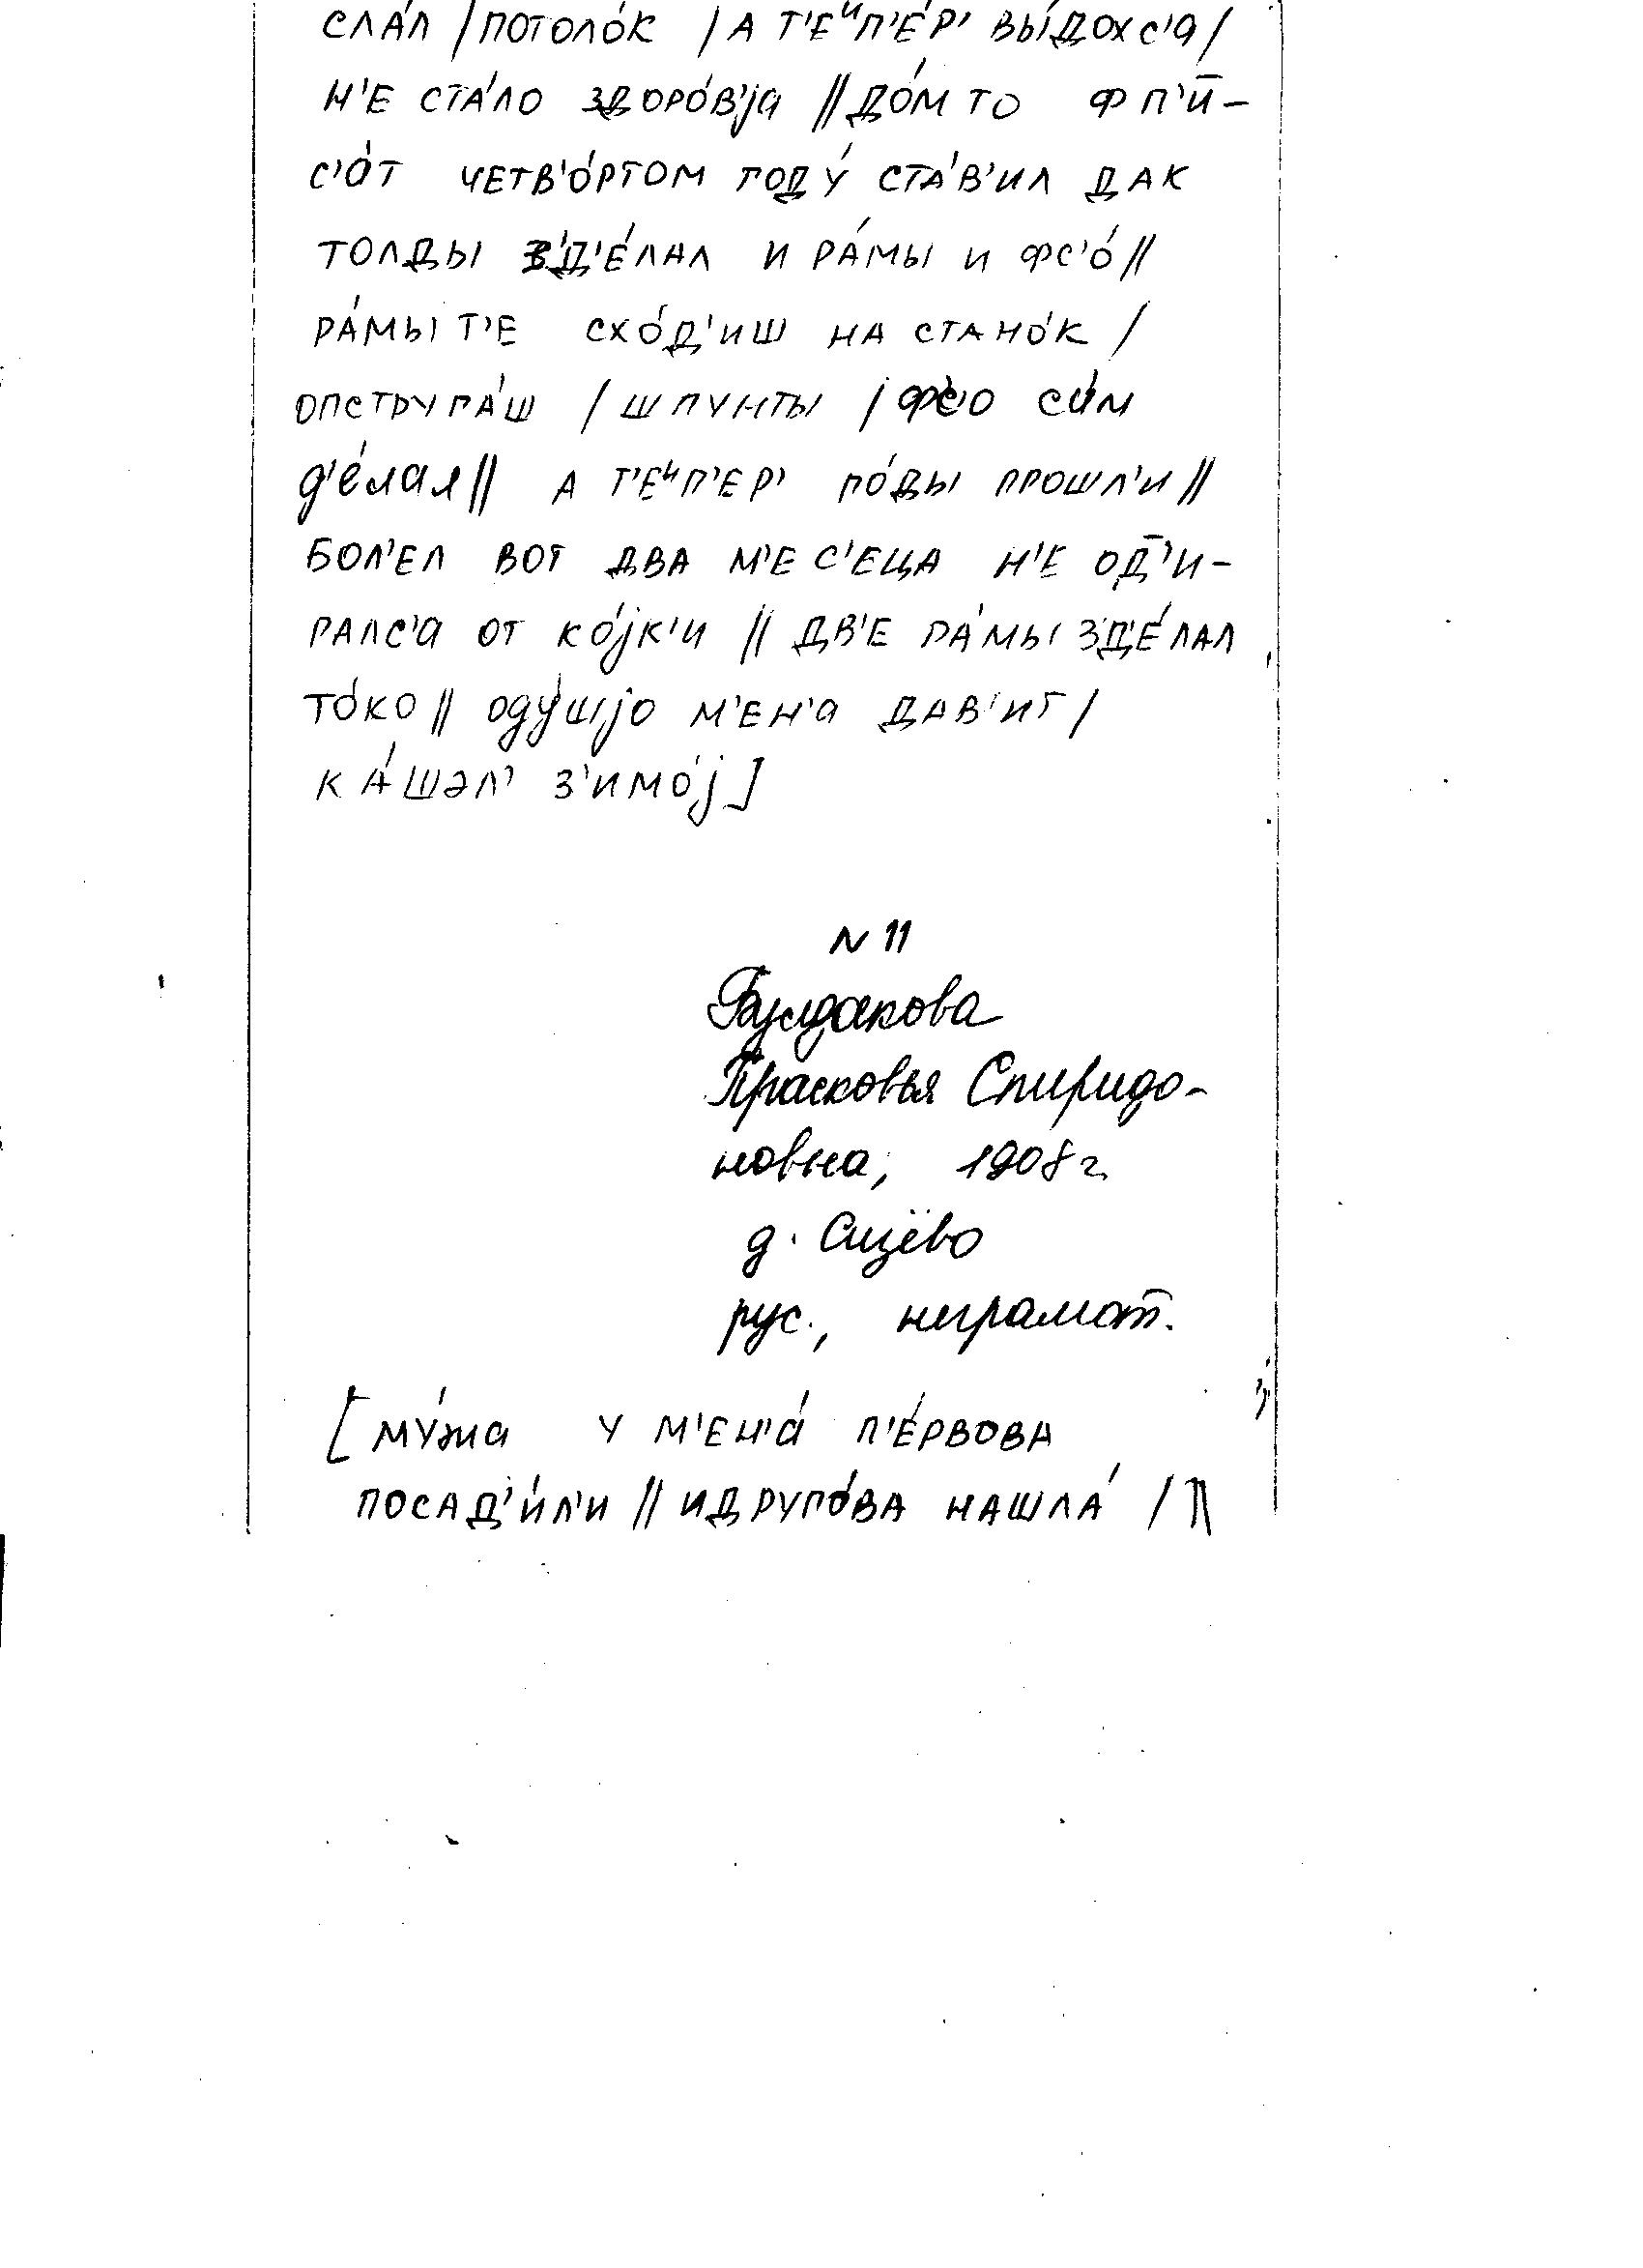 СЛА́Л / ПОТОЛО́К / А Т'ЕᴻП'Е́Р' ВЫ́ДОХС'А /
Н'Е СТА́ЛО ЗДОРО́В'JА // ДО́М ТО Ф П'Ӣ-
С'А́Т ЧЕТВ'О́РТОМ ГОДУ́ СТА́В'ИЛ ДАК
ТОГДЫ З'Д'Е́ЛАЛ И РА́МЫ И ФС'О́ //
РА́МЫ Т'Е СХО́Д'ИШ НА СТАНО́К /
ОПСТРУГА́Ш / ШПУНТЫ / ФС'О СА́М
Д'Е́ЛАЛ // А Т'ЕᴻП'ЕР' ГО́ДЫ ПРОШЛ'И //
БОЛ'ЕЛ ВОТ ДВА М'ЕС'ЕЦА Н'Е ОД̄'И-
РАЛС'А ОТ КО́JК'И // ДВ'Е РА́МЫ З'Д'Е́ЛАЛ
ТО́КО // ОДУ́ШJО М'ЕН'А ДАВ'ИТ /
КА́ШЭЛ' З'ИМО́J]
N 11
Булдакова
Прасковья Спиридо-
новна, 1908 г.
д. Сизёво
рус., неграмот.
[МУ́ЖА У М'ЕН'А́ П'Е́РВОВА
ПОСАД'И́Л'И // И ДРУГО́ВА НАШЛА́ /